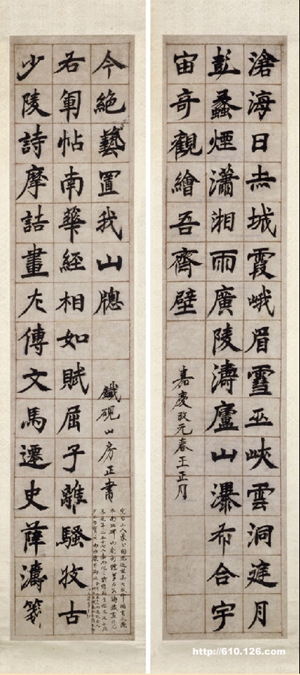 滄海日赤城霞峨眉雪巫峽雲洞庭月
彭蠡煙瀟湘雨廣陵濤廬山瀑布合宇
宙奇觀繪吾齊壁
嘉慶改元春王正月
少陵詩摩詰畫左傳文馬遷史薛濤箋
右軍帖南華經相如賦屈子離騷收古
今絕藝置我山牕
鐵硯山房正書
http://610.126.com